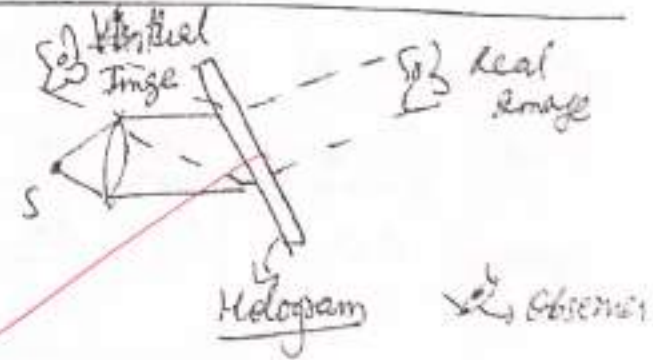 Virtual
Imge
Real
Image
S
Hologram
Observer